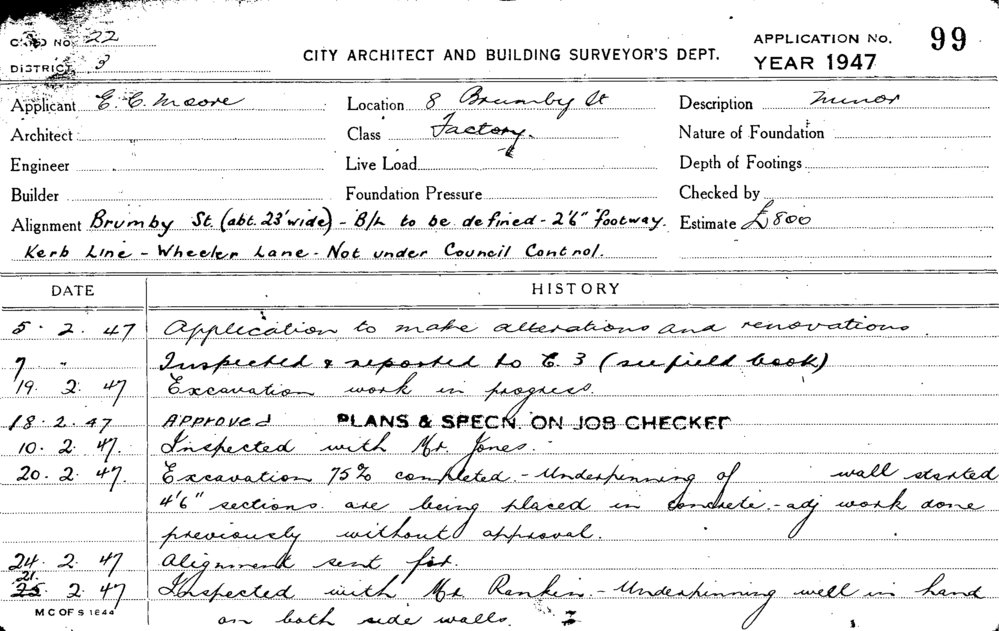 CARD NO. 22
DISTRICT 3
CITY ARCHITECT AND BUILDING SURVEYOR'S DEPT.
APPLICATION No. 99
YEAR 1947
Applicant E. C. Moore Location 8 Brumby St Description minor
Architect Class Factory. Nature of Foundation
Engineer Live Load Depth of Footings
Builder Foundation Pressure Checked by
Alignment Brumby St. (abt. 23' wide) - B/L to be defined - 2'6" footway. Estimate £800
Kerb Line - Wheeler Lane - Not under Council Control.
DATE HISTORY
5. 2. 47 Application to make alterations and renovations.
7 " Inspected & reported to C. 3 (see field book)
19. 2. 47 Excavation work in progress.
18. 2. 47 APPROVED PLANS & SPECN. ON JOB CHECKED
10. 2. 47. Inspected with Mr. Jones.
20. 2. 47. Excavation 75% completed. - Underpinning of wall started
4'6" sections are being placed in concrete. - adj work done
previously without approval.
24. 2. 47 Alignment sent for.
21.
25. 2. 47 Inspected with Mr. Rankin. - Underpinning well in hand
M C OF S 1844
on both side walls.